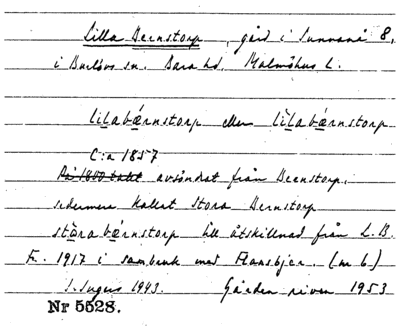 Lilla Bernstorp, gård i Sunnanå 8,
i Burlövs sn. Bara hd. Malmöhus L.
lilabǽrnstorp eller lìlabǽrnstorp
C:a 1857
På 1800 talet avsöndrat från Bernstorp,
sedermera kallat Stora Bernstorp
stórabǽrnstorp till åtskillnad från L.B.
Fr. 1917 i sambruk med Flansbjer. (nr 6.)
1943. Gården riven 1953
Nr 5528.